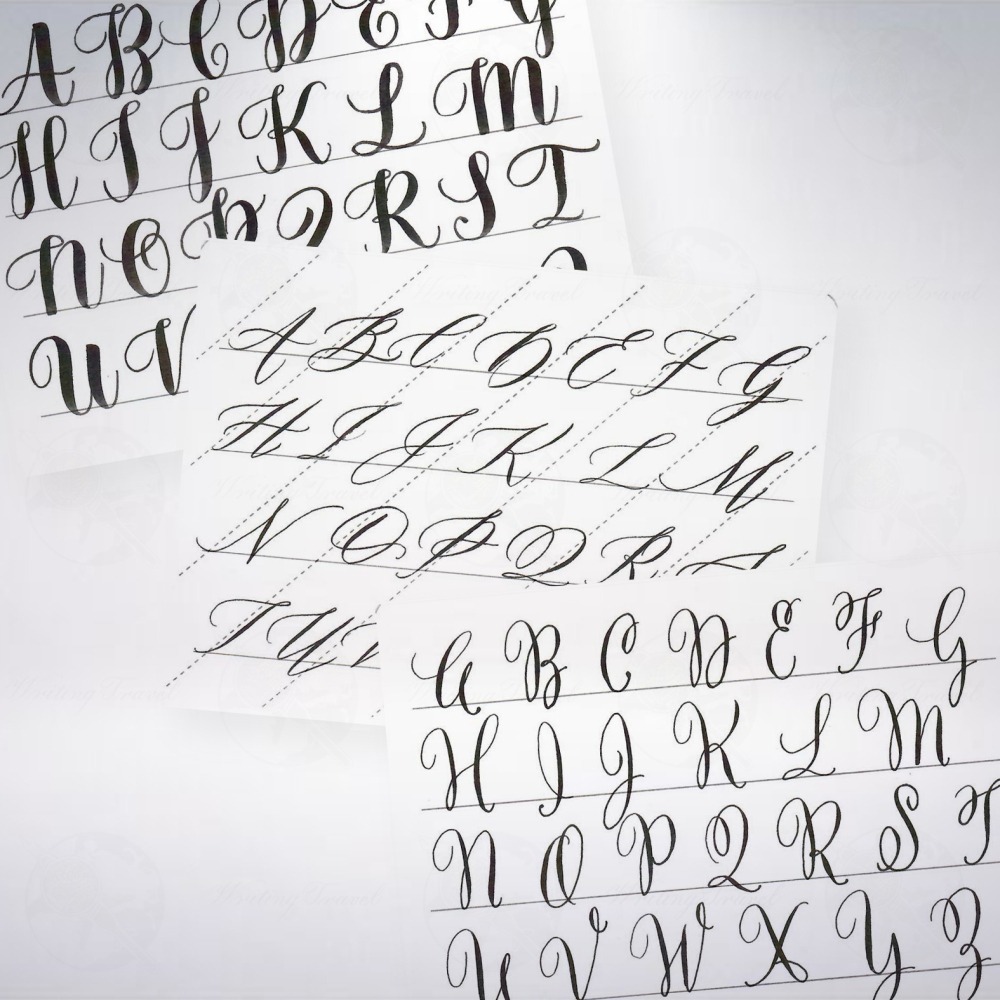 A B C D E F G
H I J K L M
N O P Q R S T
U V
A B C D E F G
H I J K L M
N O P Q R
T U
A B C D E F G
H I J K L M
N O P Q R S T
U V W X Y Z
Writing Travel